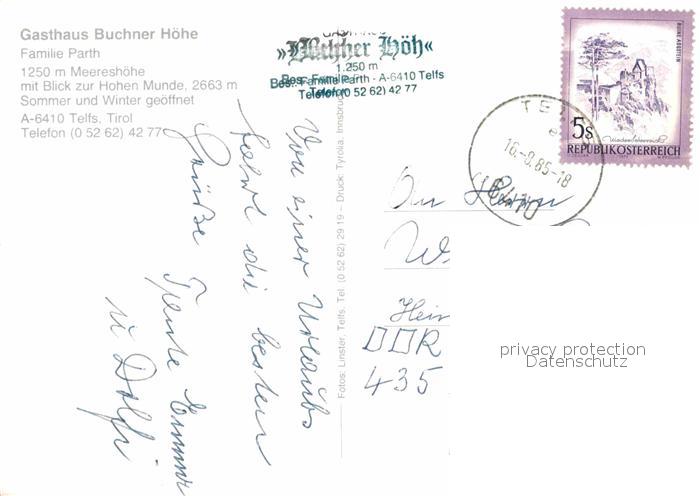 Gasthaus Buchner Höhe
Familie Parth
1250 m Meereshöhe
mit Blick zur Hohen Munde, 2663 m
Sommer und Winter geöffnet
A-6410 Telfs, Tirol
Telefon (0 52 62) 42 77
GASTHAUS
Höh«
1.250 m
Bes. Familie Parth - A-6410 Telfs
Telefon (0 52 62) 42 77
Von einer Urlaubs
fahrt die besten
Grüße Tante Emmi
u Dolfi
Fotos: Linster, Telfs, Tel. (0 52 62) 29 19 – Druck: Tyrolia, Innsbruck
5s
REPUBLIK ÖSTERREICH
Niederösterreich
RUINE AGGSTEIN
16.-9.85-18
6410
An Herrn
W
Hein
DDR
435
privacy protection
Datenschutz